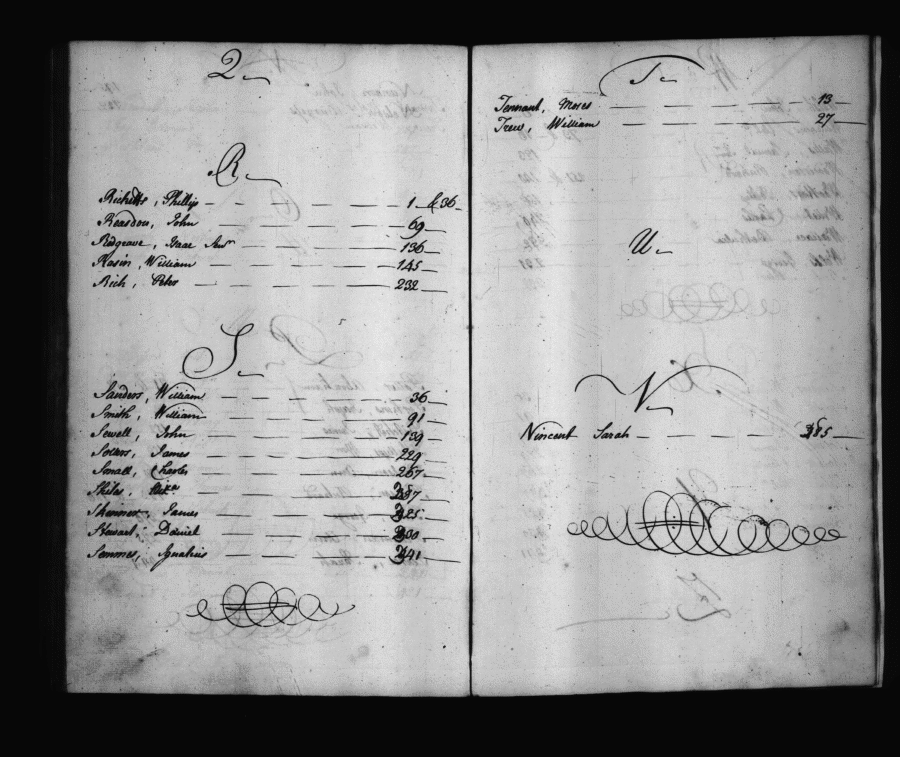 Q
R
Ricketts, Phillip 1 & 36
Reasdon, John 69
Redgrave, Isaac Senr 136
Rasin, William 145
Rich, Peter 232
S
Sanders, William 36
Smith, William 91
Sewell, John 139
Sollers, James 229
Small, Charles 267
Skiles,
Skinner, James 325
Stewart, Daniel 300
Semmes, Ignatius 341
T
Tennant, Moses 13
Trew, William 27
U
V
Vincent Sarah 285